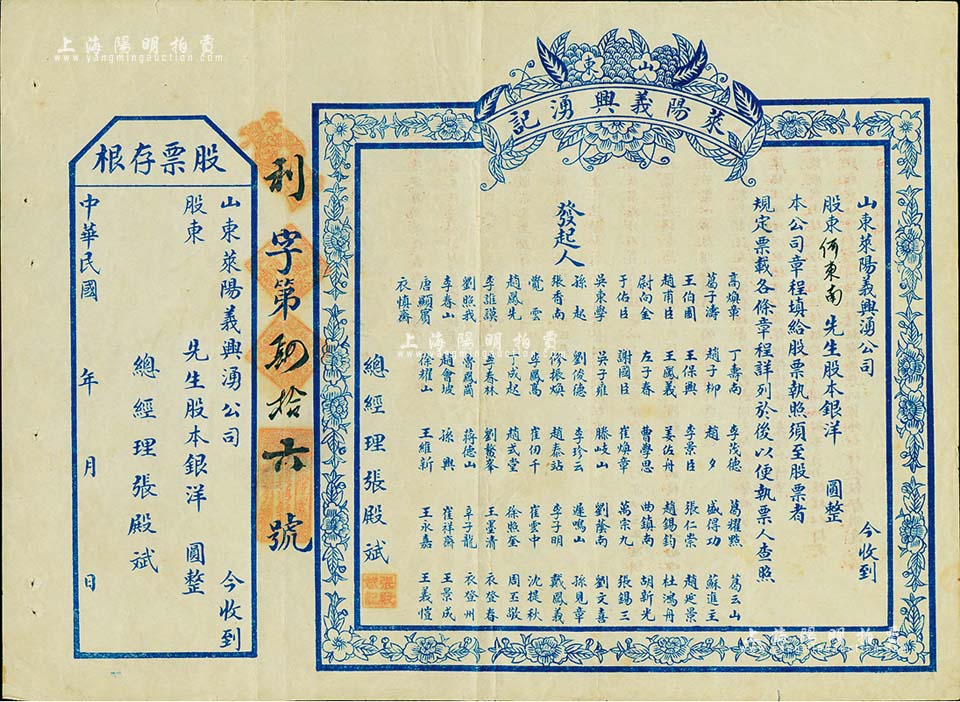 上海陽明拍賣
www.yangmingauction.com
山東
萊陽義興湧記
今收到
山東萊陽義興湧公司
股東何東南先生股本銀洋 圓整
本公司章程填給股票執照須至股票者
規定票載各條章程詳列於後以便執票人查照
發起人
高煥章 丁壽南 李茂德 葛耀熙 葛云山
葛子濤 趙子柳 趙夕 盛得功 蘇進主
王伯圃 王保興 李景臣 張仁崇 趙延景
趙甫臣 王鳳義 姜佐舟 趙錫鈞 杜鴻舟
尉向金 左子春 曹學思 曲鎮南 胡新光
于佑臣 謝國臣 崔煥章 萬宗九 張錫三
吳東學 吳子雍 滕岐山 劉蔭南 劉文喜
孫起 劉俊德 李珍云 遲鳴山 孫見章
張香南 修振煥 趙泰站 李子明 戴鳳義
覺雲 李鳳高 崔仞千 崔雲中 沈提秋
趙鳳先 丁成起 趙式堂 徐熙奎 周玉敬
李維謨 李春林 劉鰲峯 王墨清 衣登春
劉照我 魯鳳岡 蔣德山 辛子龍 衣登州
李春山 趙會坡 孫興 崔祥齋 王景成
唐顯賓 徐耀山 王維新 王永嘉 王義愷
衣慎齋
總經理張殿斌
利字第 拾六號
股票存根
今收到
山東萊陽義興湧公司
股東 先生股本銀洋 圓整
總經理張殿斌
中華民國 年 月 日
上海陽明拍賣
www.yangmingauction.com
上海陽明拍賣
www.yangmingauction.com